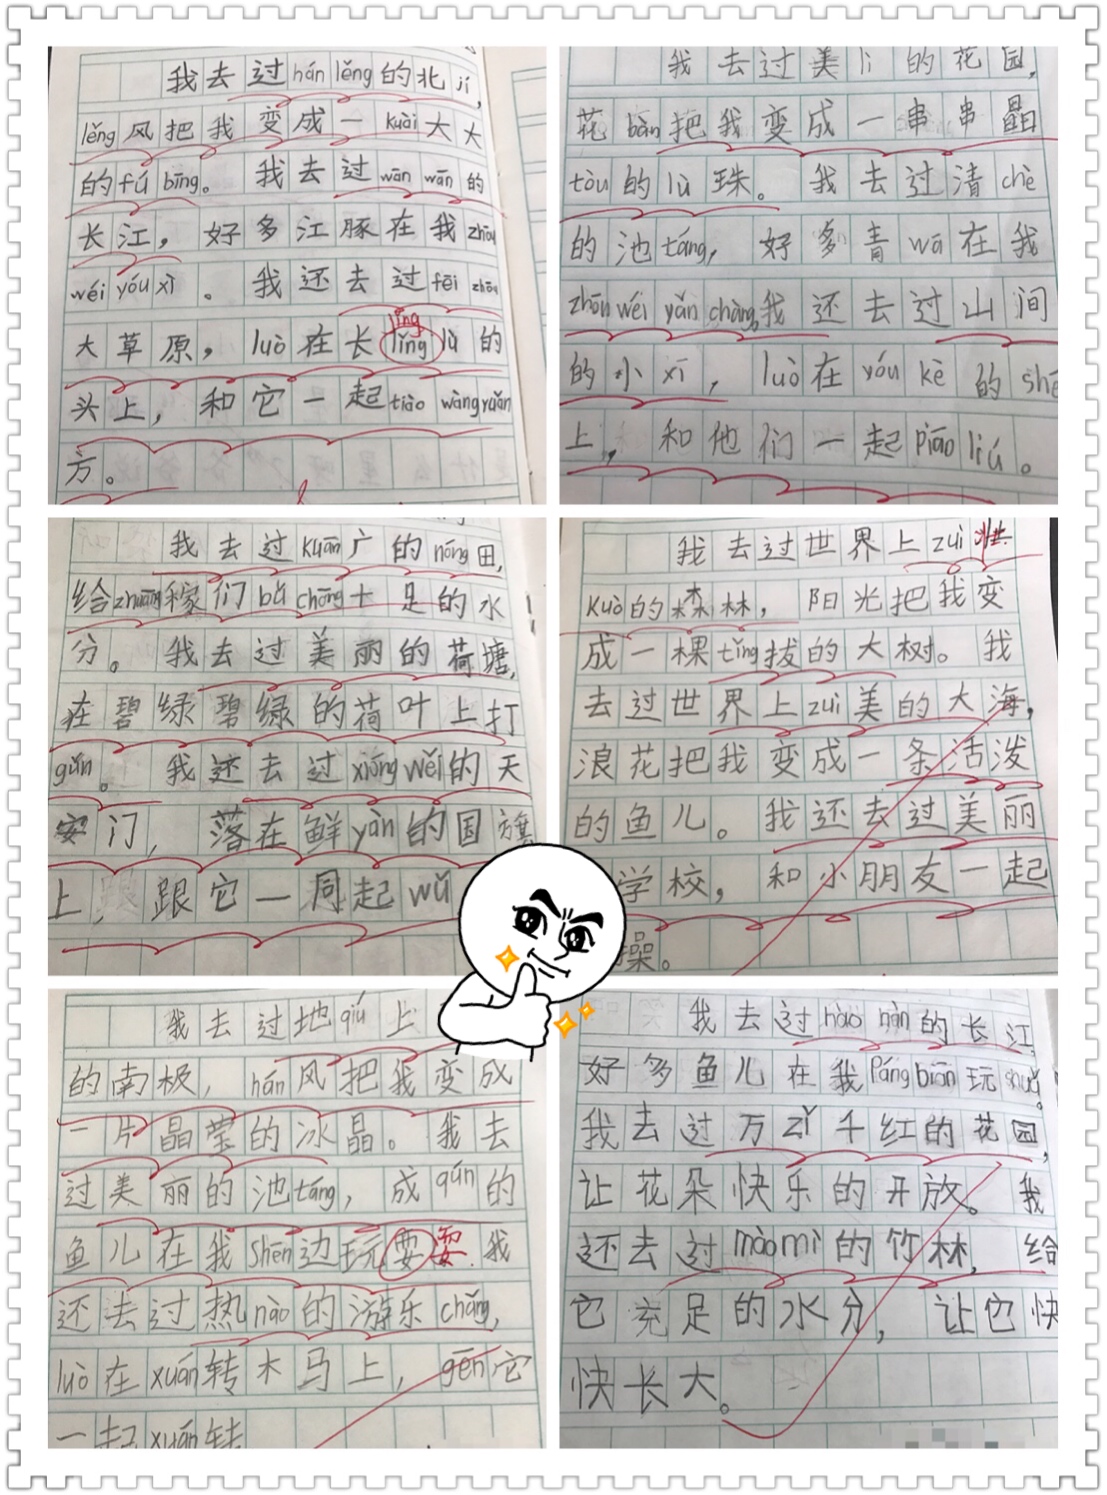 我去过hán lěng的北jí，
lěng风把我变成一kuài大大
的fú bīng。我去过wān wān的
长江，好多江豚在我zhōu
wéi yóu xì。我还去过fēi zhōu
大草原，luò在长líng lù的
jǐng
头上，和它一起tiào wàng yuǎn
方。
我去过美lì的花园，
花bàn把我变成一串串晶
tòu的lù珠。我去过清chè
的池táng，好多青wā在我
zhōu wéi yǎn chàng，我还去过山涧
的小xī，luò在yóu kè的shē
上，和他们一起piāo liú。
我去过kuān广的nóng田，
给zhuāng稼们bǔ chōng十足的水
分。我去过美丽的荷塘，
在碧绿碧绿的荷叶上打
gǔn。我还去过xióng wěi的天
安门，落在鲜yàn的国旗
上，跟它一同起wǔ
我去过世界上zuì壮
kuò的森林，阳光把我变
成一棵tǐng拔的大树。我
去过世界上zuì美的大海，
浪花把我变成一条活泼
的鱼儿。我还去过美丽
学校，和小朋友一起
操。
我去过地qiú上
的南极，hán风把我变成
一片晶莹的冰晶。我去
过美丽的池táng，成qún的
鱼儿在我shēn边玩要耍。我
还去过热nào的游乐chǎng，
luò在xuán转木马上，gēn它
一起xuán转
我去过hào hàn的长江，
好多鱼儿在我Páng biān玩shuǎ。
我去过万zǐ千红的花园，
让花朵快乐的开放。我
还去过mào mì的竹林，给
它充足的水分，让它快
快长大。